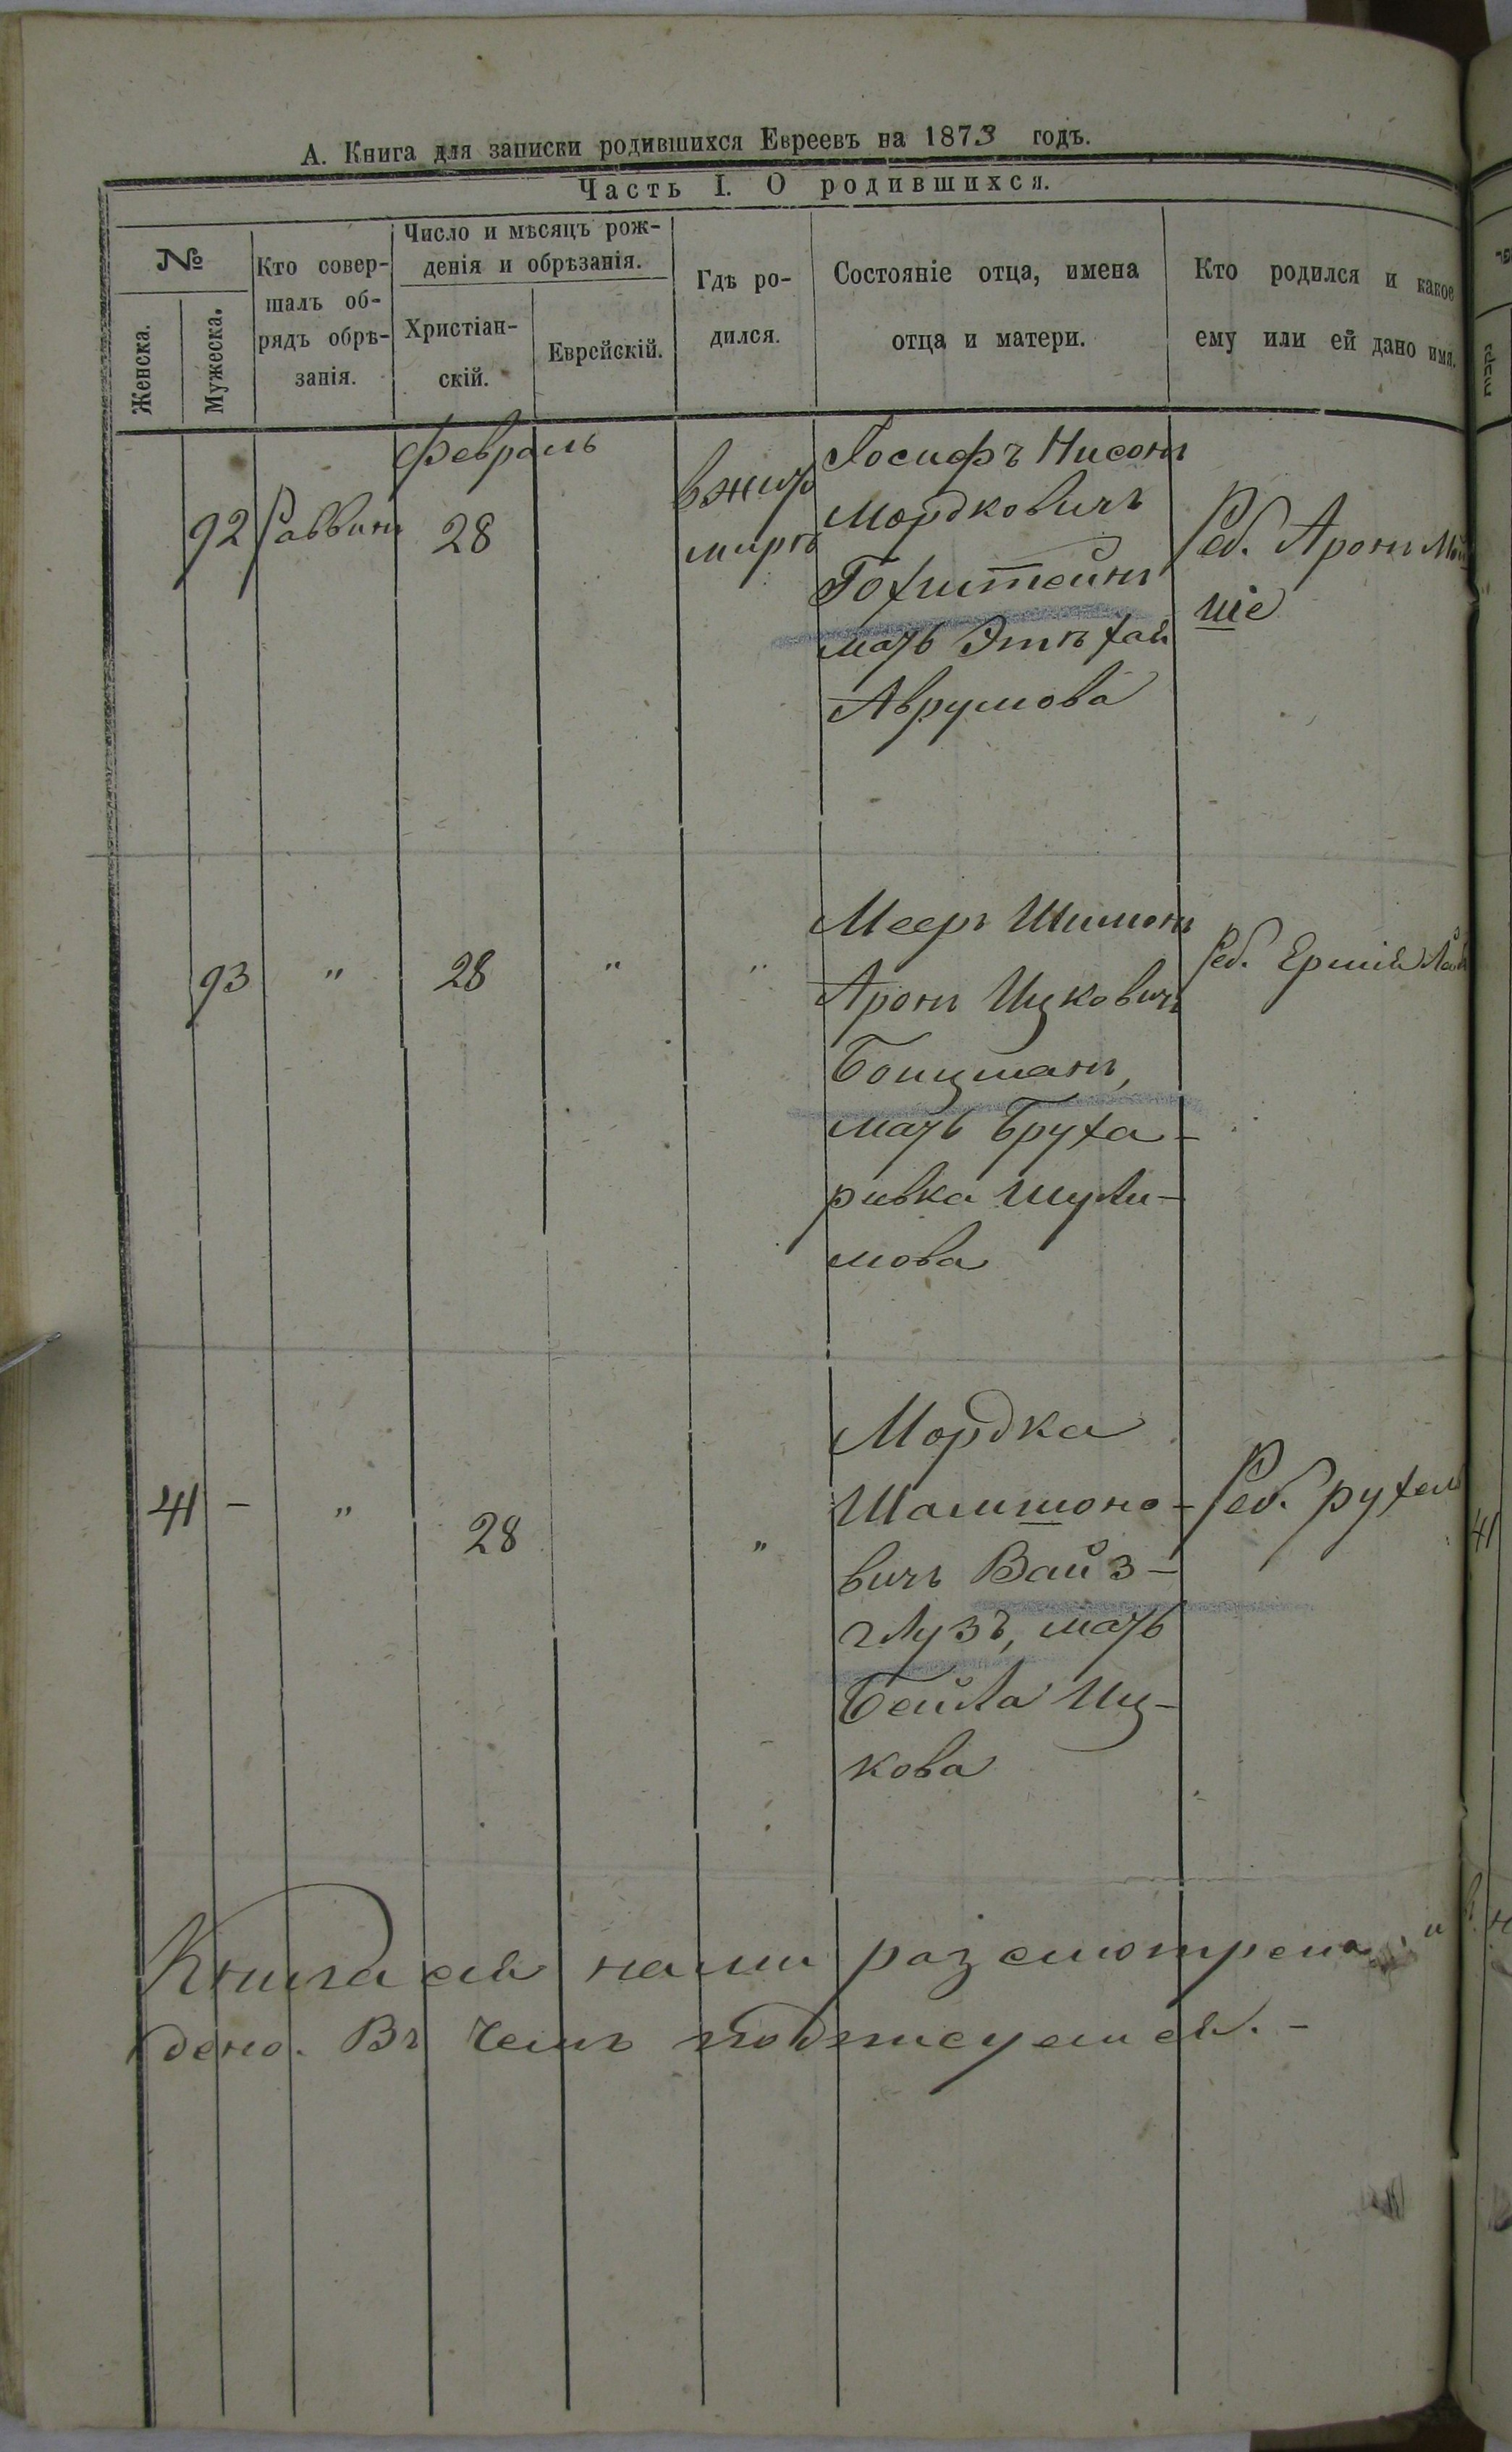 А. Книга для записки родившихся Евреевъ на 1873 годъ.
Часть I. О родившихся.
№
Женска.
Мужеска.
Кто совер-
шалъ об-
рядъ обрѣ-
занія.
Число и мѣсяцъ рож-
денія и обрѣзанія.
Христіан-
скій.
Еврейскій.
Гдѣ ро-
дился.
Состояніе отца, имена
отца и матери.
Кто родился и какое
ему или ей дано имя.
Февраль
92 Раввинъ 28
въ Жито
миръ
Іосифъ Нисонъ
Мордковичъ
Гохштейнъ
мать Этя Хая
Аврумова
Реб. Аронъ Мой
ше
93 " 28 " "
Мееръ Шимонъ
Аронъ Ицковичъ
Боицманъ,
мать Бруха-
ривка Шули-
мова
Реб. Ершія
41 - " 28 "
Мордка
Шамшоно-
вичъ Вайз-
глузъ, мать
Бейла Иц-
кова
Реб. рухель
41
Книга сія нами разсмотрена и
дено. Въ чемъ подписуемся. -